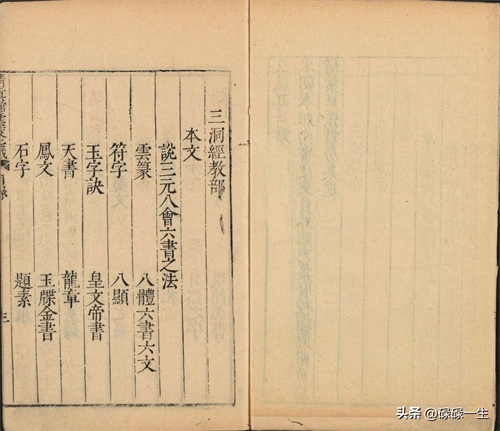 三洞經教部
本文
說三元八會六書之法
雲篆 八體六書六文
符字 八顯
玉字訣 皇文帝書
天書 龍章
鳳文 玉牒金書
石字 題素
目錄 三
头条 @碌碌一生